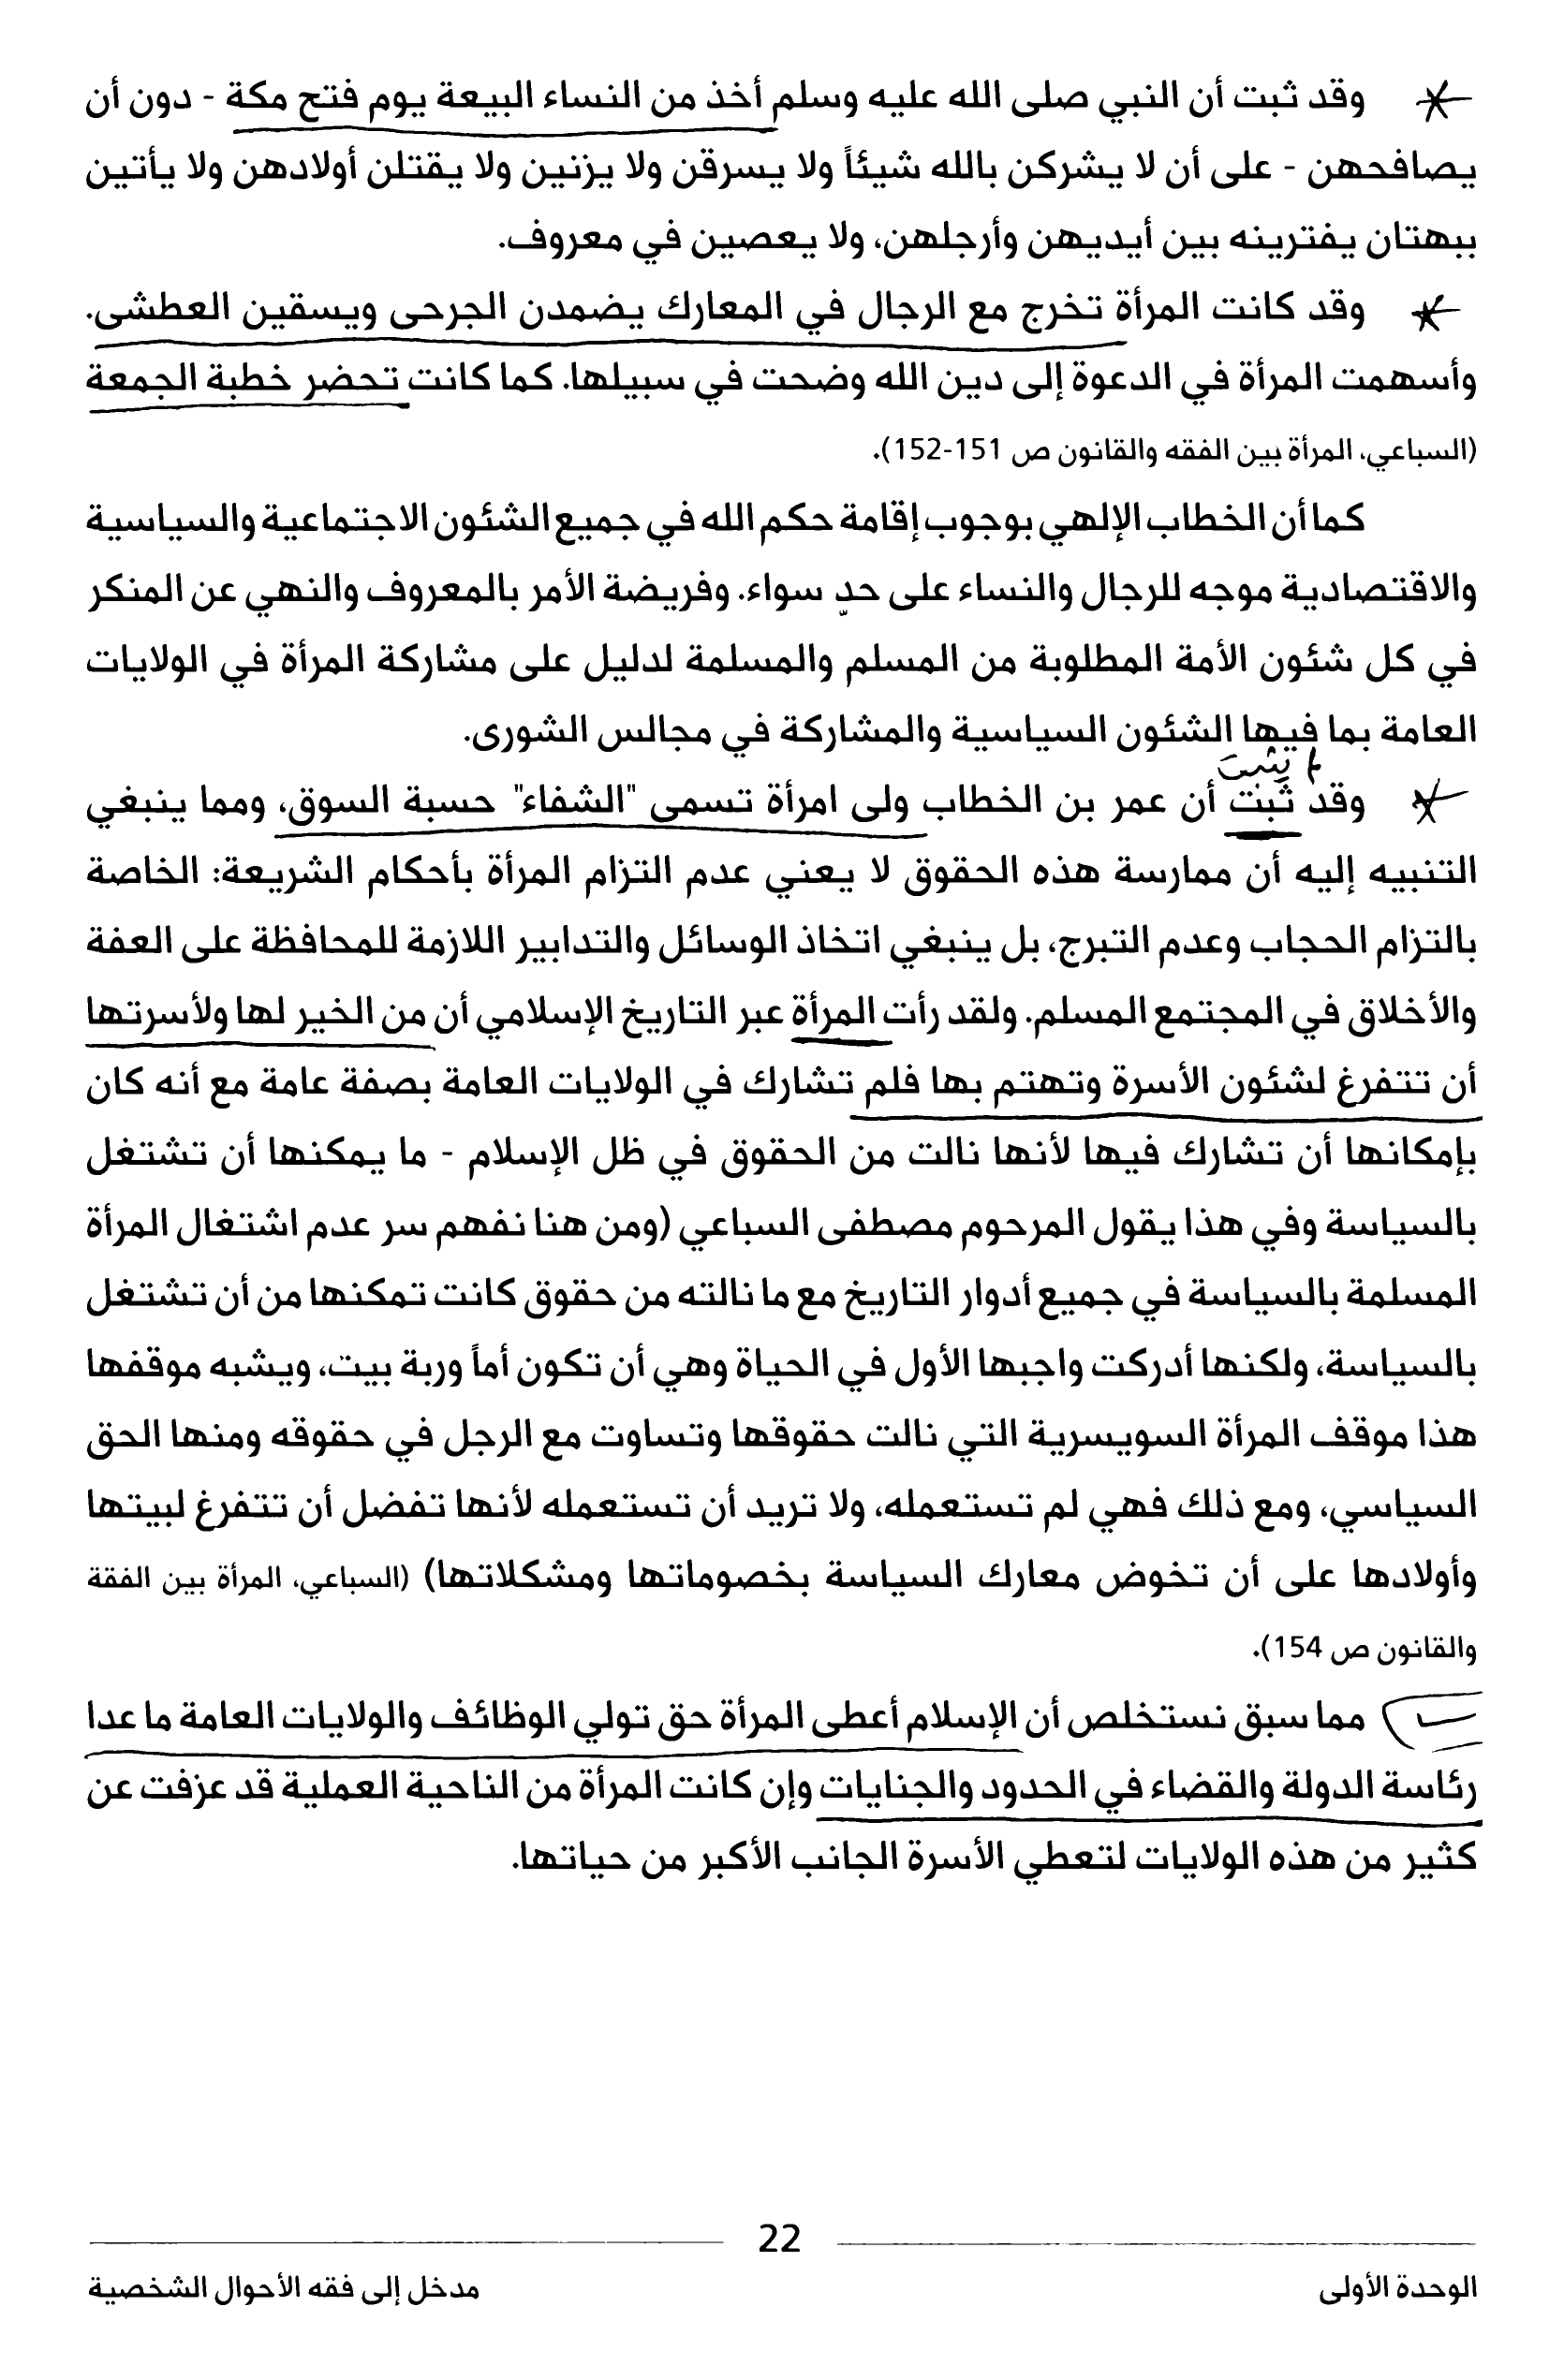 وقد ثبت أن النبي صلى الله عليه وسلم أخذ من النساء البيعة يوم فتح مكة - دون أن
يصافحهن - على أن لا يشركن بالله شيئاً ولا يسرقن ولا يزنين ولا يقتلن أولادهن ولا يأتين
ببهتان يفترينه بين أيديهن وأرجلهن، ولا يعصين في معروف.
وقد كانت المرأة تخرج مع الرجال في المعارك يضمدن الجرحى ويسقين العطشى.
وأسهمت المرأة في الدعوة إلى دين الله وضحت في سبيلها. كما كانت تحضر خطبة الجمعة
(السباعي، المرأة بين الفقه والقانون ص 151-152).
كما أن الخطاب الإلهي بوجوب إقامة حكم الله في جميع الشئون الاجتماعية والسياسية
والاقتصادية موجه للرجال والنساء على حدٍ سواء. وفريضة الأمر بالمعروف والنهي عن المنكر
في كل شئون الأمة المطلوبة من المسلم والمسلمة لدليل على مشاركة المرأة في الولايات
العامة بما فيها الشئون السياسية والمشاركة في مجالس الشورى.
لم يثبت
وقد ثبت أن عمر بن الخطاب ولى امرأة تسمى "الشفاء" حسبة السوق، ومما ينبغي
التنبيه إليه أن ممارسة هذه الحقوق لا يعني عدم التزام المرأة بأحكام الشريعة: الخاصة
بالتزام الحجاب وعدم التبرج، بل ينبغي اتخاذ الوسائل والتدابير اللازمة للمحافظة على العفة
والأخلاق في المجتمع المسلم. ولقد رأت المرأة عبر التاريخ الإسلامي أن من الخير لها ولأسرتها
أن تتفرغ لشئون الأسرة وتهتم بها فلم تشارك في الولايات العامة بصفة عامة مع أنه كان
بإمكانها أن تشارك فيها لأنها نالت من الحقوق في ظل الإسلام - ما يمكنها أن تشتغل
بالسياسة وفي هذا يقول المرحوم مصطفى السباعي (ومن هنا نفهم سر عدم اشتغال المرأة
المسلمة بالسياسة في جميع أدوار التاريخ مع ما نالته من حقوق كانت تمكنها من أن تشتغل
بالسياسة، ولكنها أدركت واجبها الأول في الحياة وهي أن تكون أماً وربة بيت، ويشبه موقفها
هذا موقف المرأة السويسرية التي نالت حقوقها وتساوت مع الرجل في حقوقه ومنها الحق
السياسي، ومع ذلك فهي لم تستعمله، ولا تريد أن تستعمله لأنها تفضل أن تتفرغ لبيتها
وأولادها على أن تخوض معارك السياسة بخصوماتها ومشكلاتها) (السباعي، المرأة بين الفقة
والقانون ص 154).
مما سبق نستخلص أن الإسلام أعطى المرأة حق تولي الوظائف والولايات العامة ما عدا
رئاسة الدولة والقضاء في الحدود والجنايات وإن كانت المرأة من الناحية العملية قد عزفت عن
كثير من هذه الولايات لتعطي الأسرة الجانب الأكبر من حياتها.
22
الوحدة الأولى
مدخل إلى فقه الأحوال الشخصية